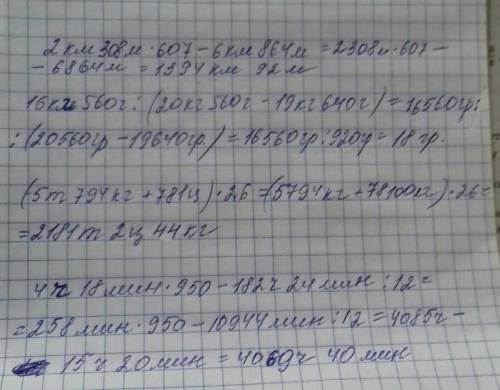 2 км 308 м · 607 – 6 км 864 м = 2308 м · 607 –
– 6864 м = 1394 км 92 м
16 кг 560 г : (20 кг 560 г – 19 кг 640 г) = 16560 гр :
: (20560 гр – 19640 гр.) = 16560 гр : 920 гр = 18 гр.
(5 т 794 кг + 781 ц) · 26 = (5794 кг + 78100 кг) · 26 =
= 2181 т 2 ц 44 кг
4 ч 18 мин · 950 – 182 ч 24 мин : 12 =
= 258 мин · 950 – 10944 мин : 12 = 4085 ч –
15 ч 20 мин = 4069 ч 40 мин